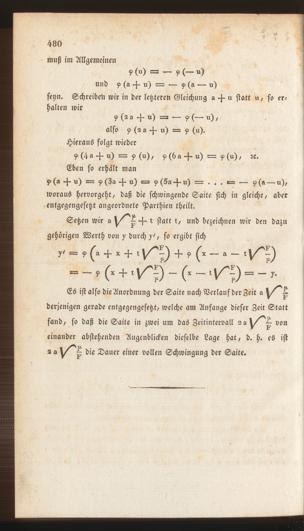 480
muß im Allgemeinen
φ (u) = — φ (— u)
und φ (a + u) = — φ (a — u)
seyn. Schreiben wir in der letzteren Gleichung a + u statt u, so er-
halten wir
φ (2 a + u) = — φ (— u),
also φ (2 a + u) = φ (u).
Hieraus folgt wieder
φ (4 a + u) = φ (u), φ (6 a + u) = φ (u), ꝛc.
Eben so erhält man
φ (a + u) = φ (3a + u) = φ (5a + u) = . . . = — φ (a — u),
woraus hervorgeht, daß die schwingende Saite sich in gleiche, aber
entgegengesetzt angeordnete Parthien theilt.
Setzen wir a √p/F + t statt t, und bezeichnen wir den dazu
gehörigen Werth von y durch y′, so ergibt sich
y′ = φ (a + x + t √F/p) + φ (x — a — t √F/p)
= — φ (x + t √F/p) — (x — t √F/p) = — y.
Es ist also die Anordnung der Saite nach Verlauf der Zeit a √p/F
derjenigen gerade entgegengesetzt, welche am Anfange dieser Zeit Statt
fand, so daß die Saite in zwei um das Zeitintervall 2 a √p/F von
einander abstehenden Augenblicken dieselbe Lage hat, d. h. es ist
2 a √p/F die Dauer einer vollen Schwingung der Saite.